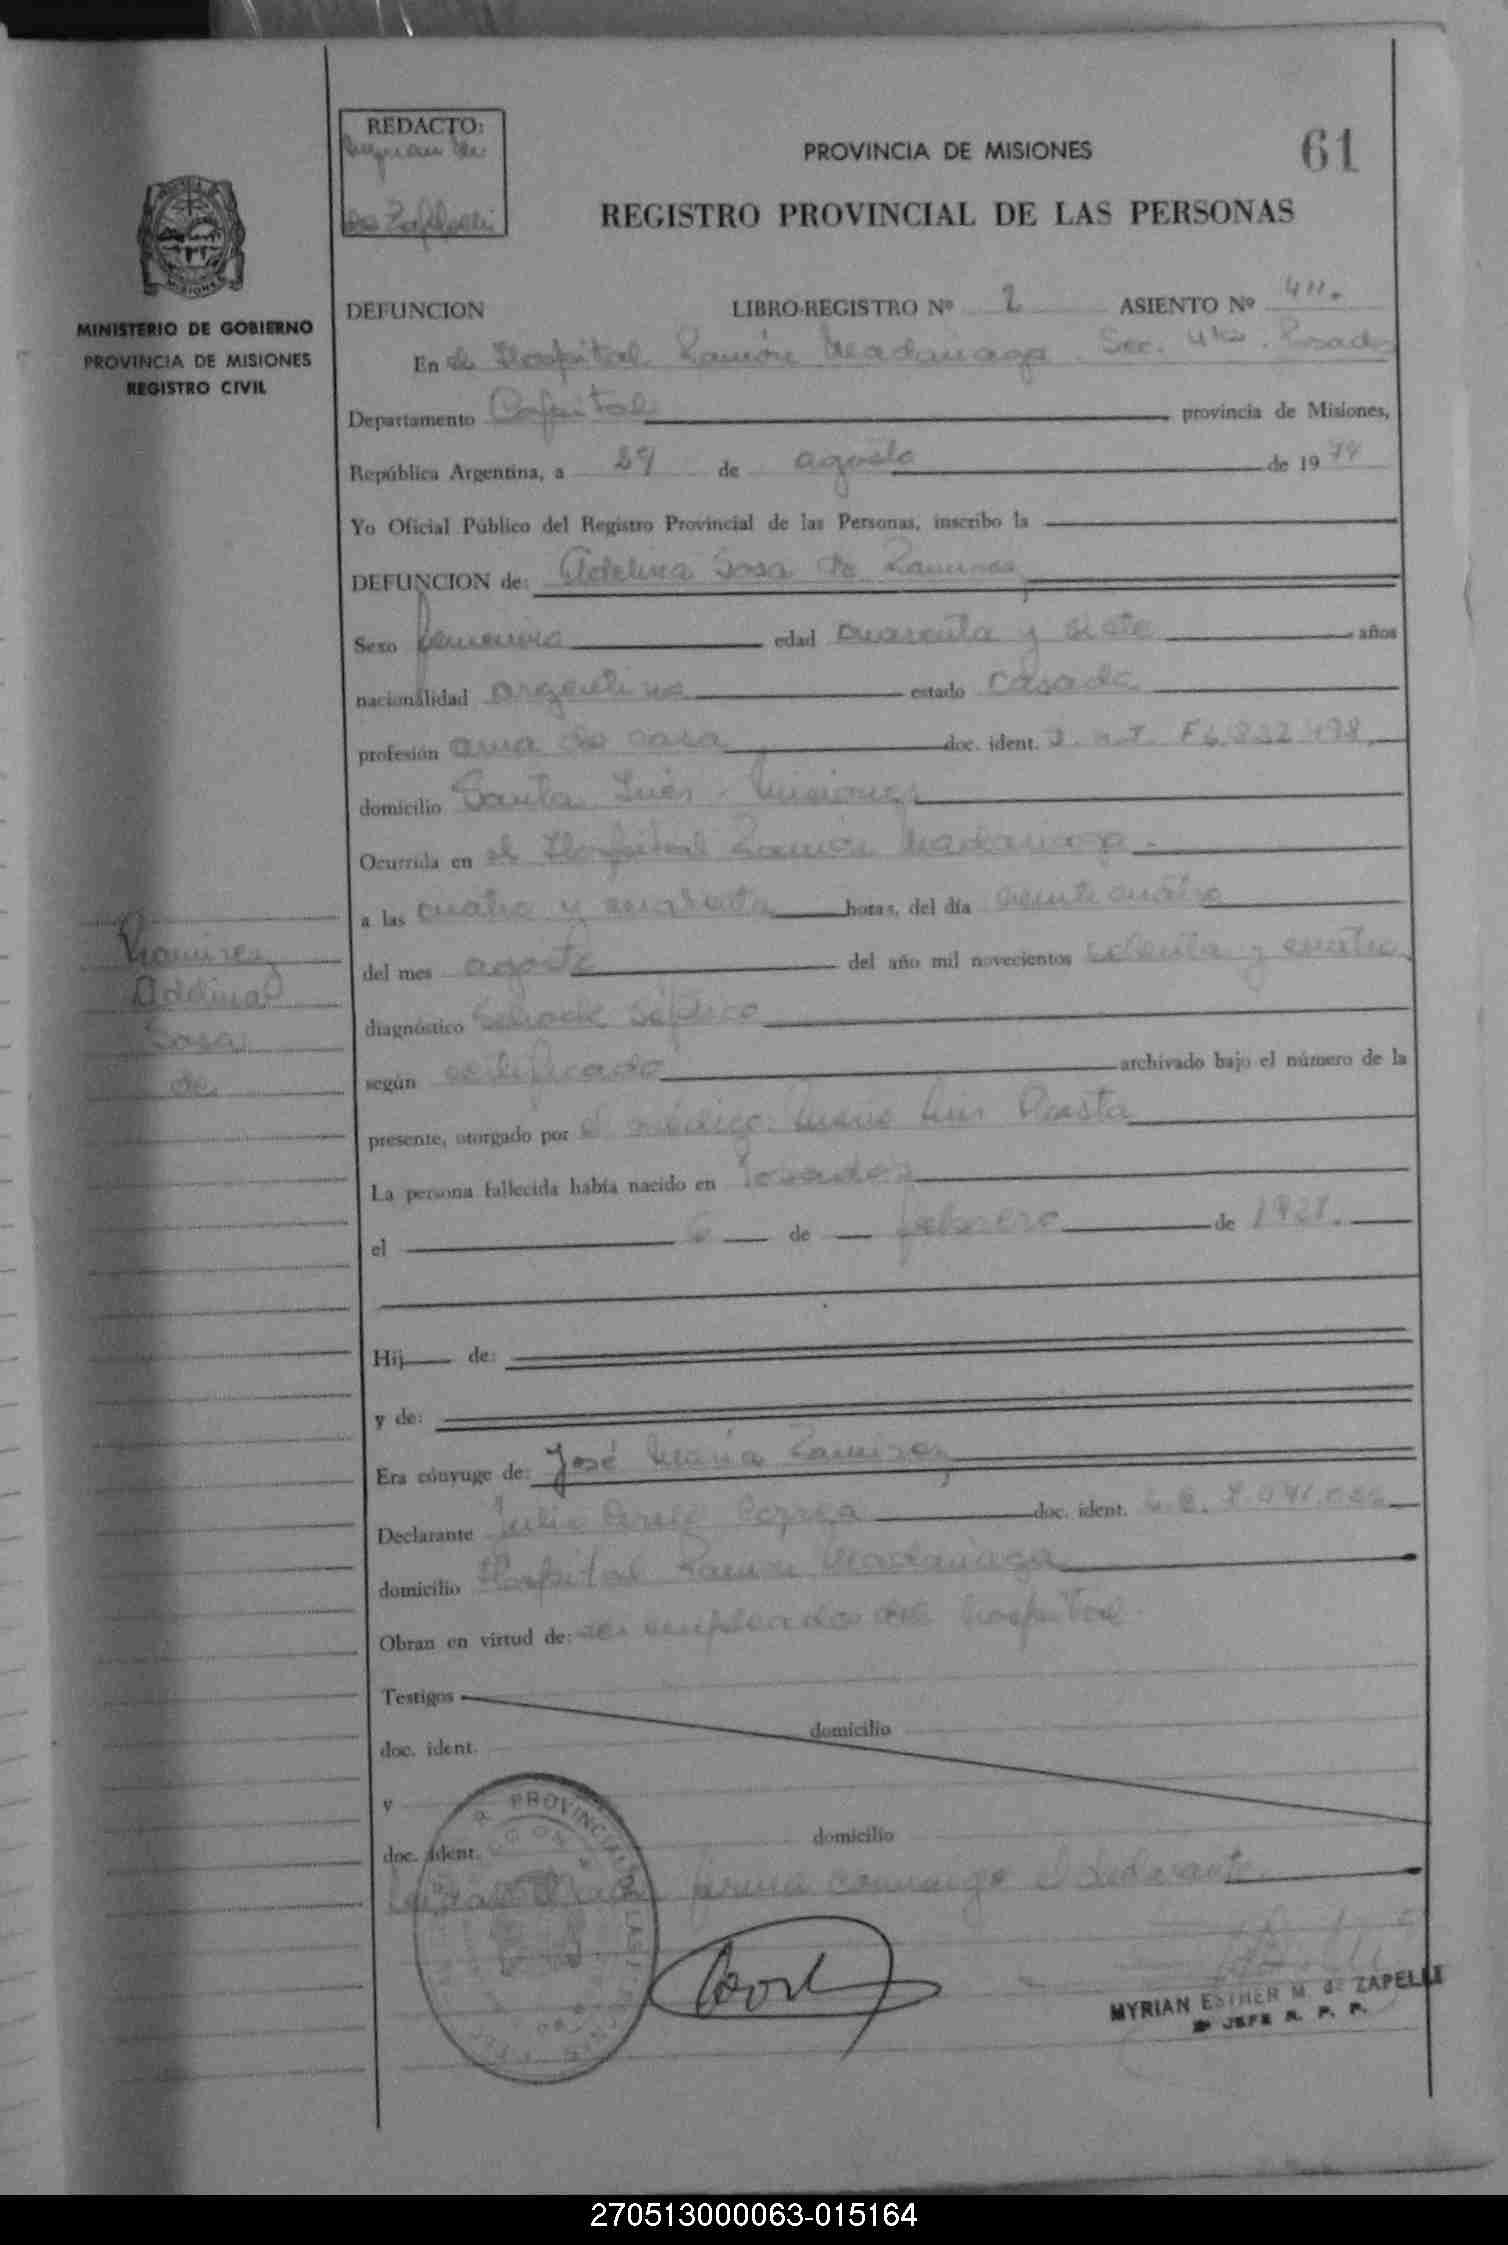 REDACTO:
PROVINCIA DE MISIONES
61
REGISTRO PROVINCIAL DE LAS PERSONAS
MINISTERIO DE GOBIERNO
PROVINCIA DE MISIONES
REGISTRO CIVIL
DEFUNCION LIBRO-REGISTRO Nº 2 ASIENTO Nº 411.
En el Hospital Ramón Madariaga. Sec. 4ta. Posadas
Departamento Capital provincia de Misiones,
República Argentina, a 29 de agosto de 1974
Yo Oficial Público del Registro Provincial de las Personas, inscribo la
DEFUNCION de: Adelina Sosa de Ramirez,
Sexo femenino edad cuarenta y siete años
nacionalidad argentina estado casada
profesión ama de casa doc. ident.
domicilio Santa Inés. Misiones
Ocurrida en el Hospital Ramón Madariaga.
a las cuatro y horas, del día veinticuatro
del mes agosto del año mil novecientos setenta y cuatro
diagnóstico Schock Séptico
según certificado archivado bajo el número de la
presente, otorgado por el médico: Mario Luis Acosta
La persona fallecida había nacido en Posadas
el 6 de febrero de
Hij de:
y de:
Era cónyuge de: José María Ramirez,
Declarante Julio Correa doc. ident.
domicilio Hospital Ramon Madariaga
Obran en virtud de: ser empleado del hospital.
Testigos
doc. ident. domicilio
y
doc. ident. domicilio
firma conmigo el declarante.
Ramirez
Adelina
Sosa
de
R. PROVINCIAL DE LAS
MYRIAN ESTHER M. de ZAPELLI
JEFE R. P. P.
270513000063-015164